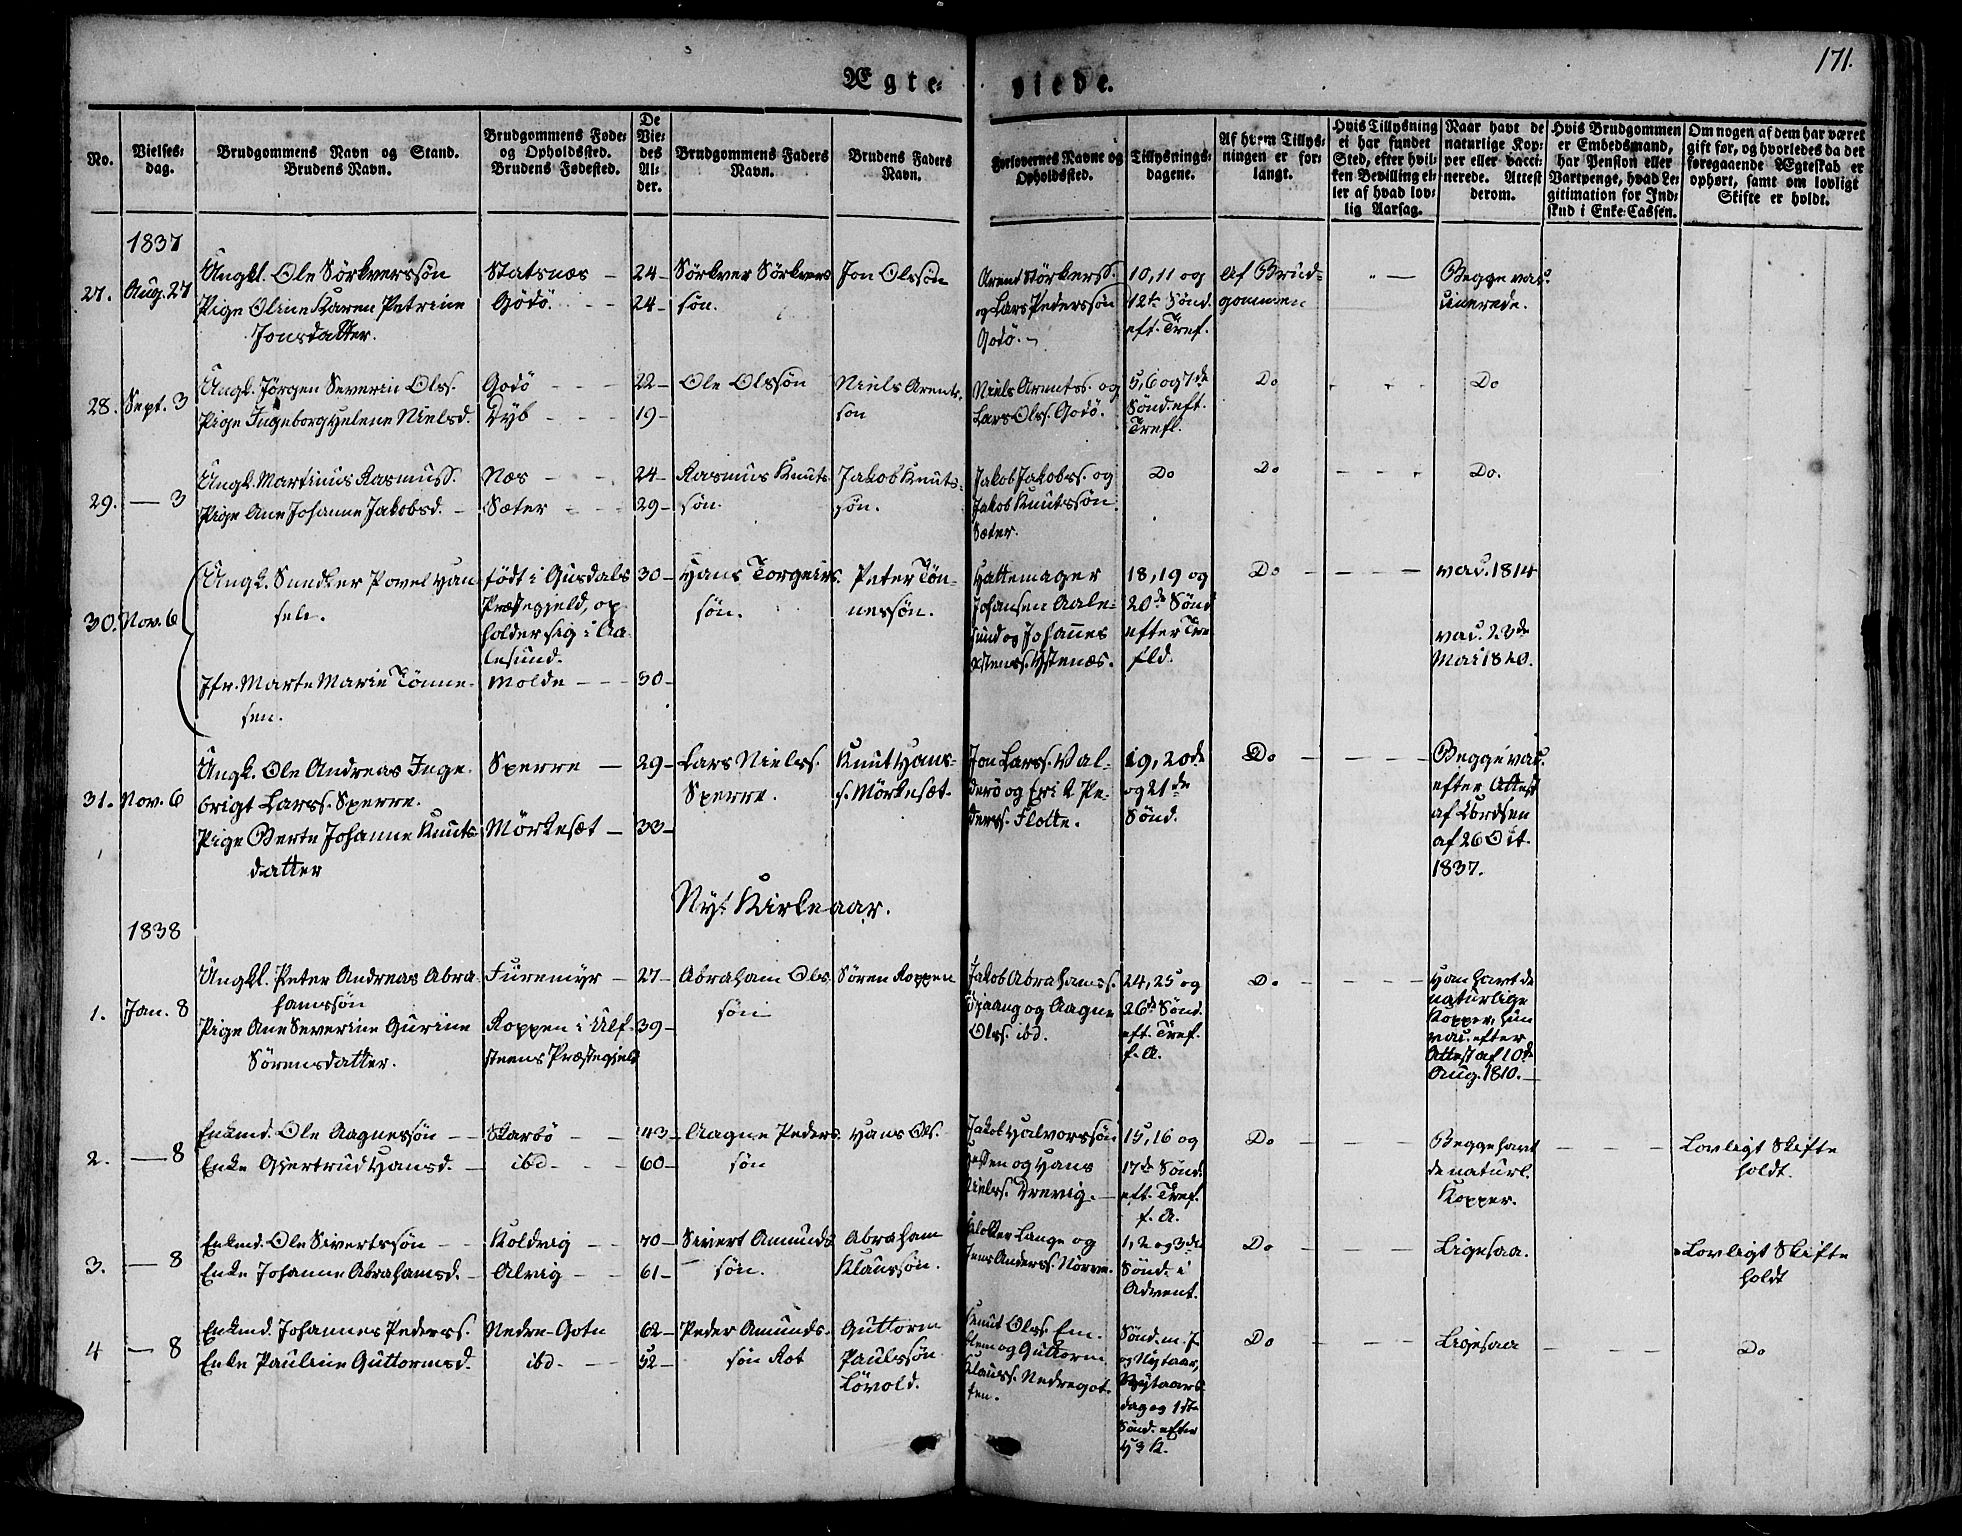 171.
Ægte-viede.
No.
Vielses-dag.
Brudgommens Navn og Stand.
Brudens Navn.
Brudgommens Føde-
og Opholdssted.
Brudens Fødested.
De
Vie-
des
Al-
der.
Brudgommens Faders
Navn.
Brudens Faders
Navn.
Forlovernes Navne og
Opholdssted.
Tillysnings-
dagene.
Af hvem Tillys-
ningen er for-
langt.
Hvis Tillysning
ei har fundet
Sted, efter hvil-
ken Bevilling el-
ler af hvad lov-
lig Aarsag.
Naar havt de
naturlige Kop-
per eller vacci-
nerede. Attest
derom.
Hvis Brudgommen
er Embedsmand,
har Pension eller
Vartpenge, hvad Le-
gitimation for Ind-
skud i Enke-Cassen.
Om nogen af dem har været
gift før, og hvorledes da det
foregaaende Ægteskab er
ophørt, samt om lovligt
Skifte er holdt.
1837
27. Aug. 27
Ungkl. Ole Sörkverssön
Pige Oline Karen Petrine
Jonsdatter.
Statsnæs —
Godö. - -
24 —
24 —
Sörkver Sörkvers
sön.
Jon Olssön
Arent Störkerss.
og Lars Pederssön
Godö. —
10, 11 og
12te Sönd.
eft. Tref.
Af Brud-
gommen
" —
Begge vac-
cinerede.
28. Sept. 3
Ungk. Jörgen Severin Olss.
Pige Ingeborg Helene Nielsd.
Godö - - -
Dyb - - -
22 —
19 —
Ole Olssön
Niels Arents-
son
Niels Arentss. og
Lars Olss. Godö.
5, 6 og 7de
Sönd. eft.
Trefl.
Do
Do
29. — 3
Ungk. Martinus Rasmuss.
Pige Ane Johanne Jakobsd. -
Næs - - -
Sæter - - -
24 —
29 —
Rasmus Knuts
sön.
Jakob Knuts-
sön.
Jakob Jakobss. og
Jakob Knutssön
Sæter.
Do
Do - - -
Do.
30. Nov. 6
Ungk. Snedker Povel Han
sen.
Jfr. Marte Marie Tönne-
sen.
født i Gusdals
Præstegjeld, op
holder sig i Aa
lesund.
Molde - - -
30 —
30 —
Hans Torgeirs
sön.
Peter Tön-
nessön.
Hattemager
Johansen Aale-
sund og Johannes
Østenss. Ystenæs.
18, 19 og
20de Sönd
efter Tre
fld.
Do - - - -
vac. 1814
vac. 22de
Mai 1820.
31. Nov. 6
Ungk. Ole Andreas Inge-
brigt Larss. Sperre.
Pige Berte Johanne Knuts
datter
Sperre —
Mörkesæt —
29 —
33 —
Lars Nielss.
Sperre.
Knut Hans-
s. Mörkesæt.
Jon Larss. Val-
derö og Erik Pe-
derss. Flotte.
19, 20de
og 21de
Sönd.
Do - - - -
Begge vac.
efter Attest
af Lordsen
af 26 Oct.
1837.
Nyt Kirkeaar.
1838
1. Jan. 8
Ungkl. Peter Andreas Abra
hamssön
Pige Ane Severine Gurine
Sörensdatter.
Furemyr —
Roppen i Ulf-
steens Præstegjeld
27 —
39 —
Abraham Ols
sön
Sören Roppen
Jakob Abrahamss.
og Aagne
Olss. ibd.
24, 25 og
26de Sönd.
eft. Tref.
f. A.
Do - - - -
Han havt de
naturlige
Kopper, hun
vac. efter
Attest af 10de
Aug. 1810. —
2. — 8
Enkmd. Ole Aagnessön - -
Enke Gjertrud Hansd. -
Skarbö - -
ibd- - -
43 —
60 —
Aagne Peders
sön
Hans Ols.
Jakob Halvorssön
Hessen og Hans
Nielss. Drevig. —
15, 16 og
17de Sönd.
eft. Tref.
f. A.
Do - - - -
Begge havt
de naturl.
Kopper.
Lovligt Skifte
holdt.
3. — 8
Enkmd. Ole Sivertssön - -
Enke Johanne Abrahamsd. -
Koldvig - -
Alvig - -
70 —
61 —
Sivert Amunds
sön.
Abraham
Klaussön.
Klokker Lange og
Jens Anderss. Norve.
1, 2 og 3de
Sönd. i
Advent.
Do - - -
Ligesaa.
Lovligt Skifte
holdt
4 — 8
Enkmd. Johannes Pederss.
Enke Pauline Guttormsd.
Nedre-Gotn
ibd- - -
62 —
52 —
Peder Amunds-
sön Rot
Guttorm
Paulssön
Lövold.
Knut Olss. Em-
blem og Guttorm
Klauss. Nedregot-
ten.
Sönd. m. J
og Nytaar,
Nytaars
dag og 1ste
Sönd. efter
H 3 K.
Do - - -
Ligesaa
Do